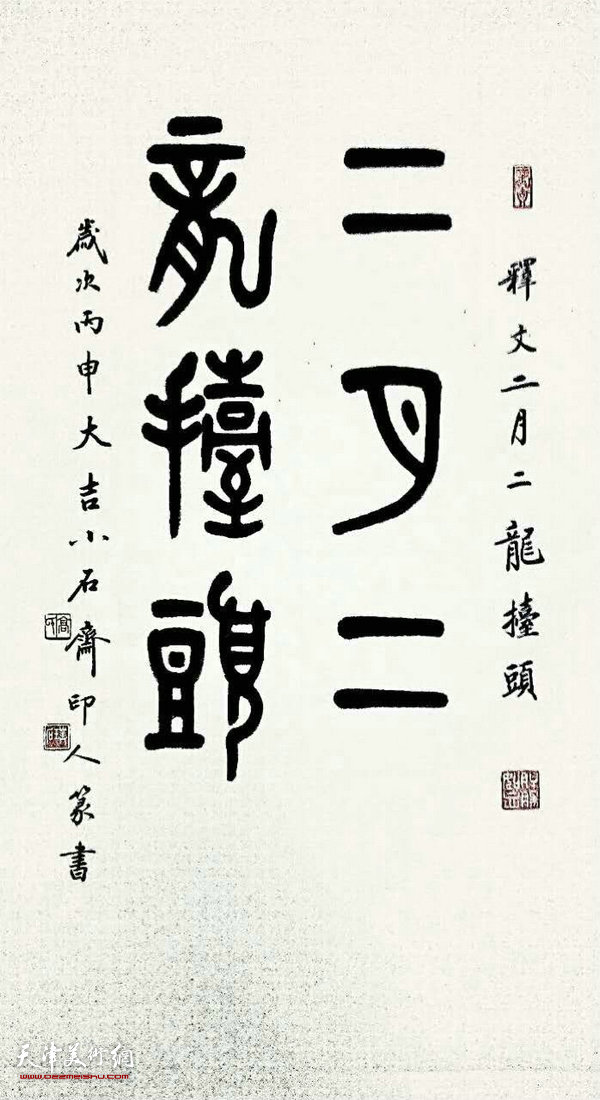 釋文二月二龍擡頭
二月二
龍擡頭
歲次丙申大吉小石齋印人篆書
天津美術網
www.022meishu.com